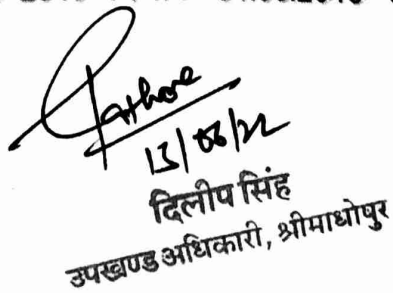 Rathore
13/06/22
दिलीप सिंह
उपखण्ड अधिकारी, श्रीमाधोपुर